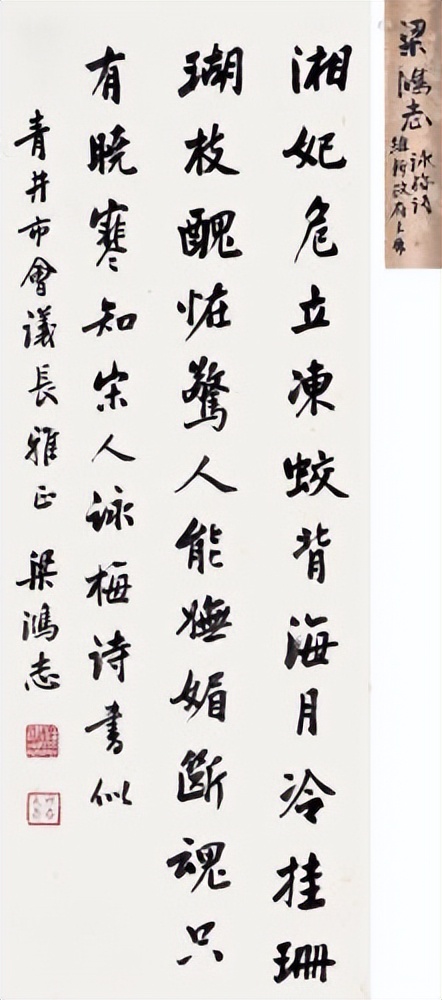 湘妃危立凍蛟背海月冷挂珊
瑚枝醜恠驚人能嫵媚斷魂只
有曉寒知宋人詠梅詩書似
青井市會議長雅正 梁鴻志
梁鴻志
詠梅詩
維新政府